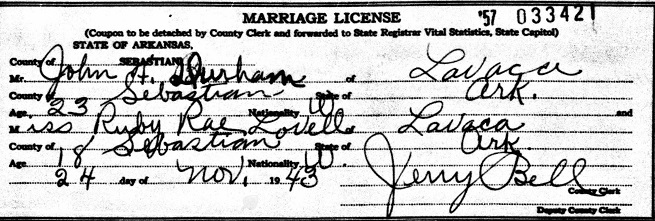 MARRIAGE LICENSE '57 033421
(Coupon to be detached by County Clerk and forwarded to State Registrar Vital Statistics, State Capitol)
STATE OF ARKANSAS,
County of SEBASTIAN
Mr. John H. Durham of Lavacca
County of Sebastian State of Ark.
Age 23 Nationality W and
Miss Ruby Rae Lovell of Lavaca
County of Sebastian State of Ark
Age 18 Nationality W.
24 day of Nov, 1943 Jerry Bell
County Clerk
Deputy County Clerk